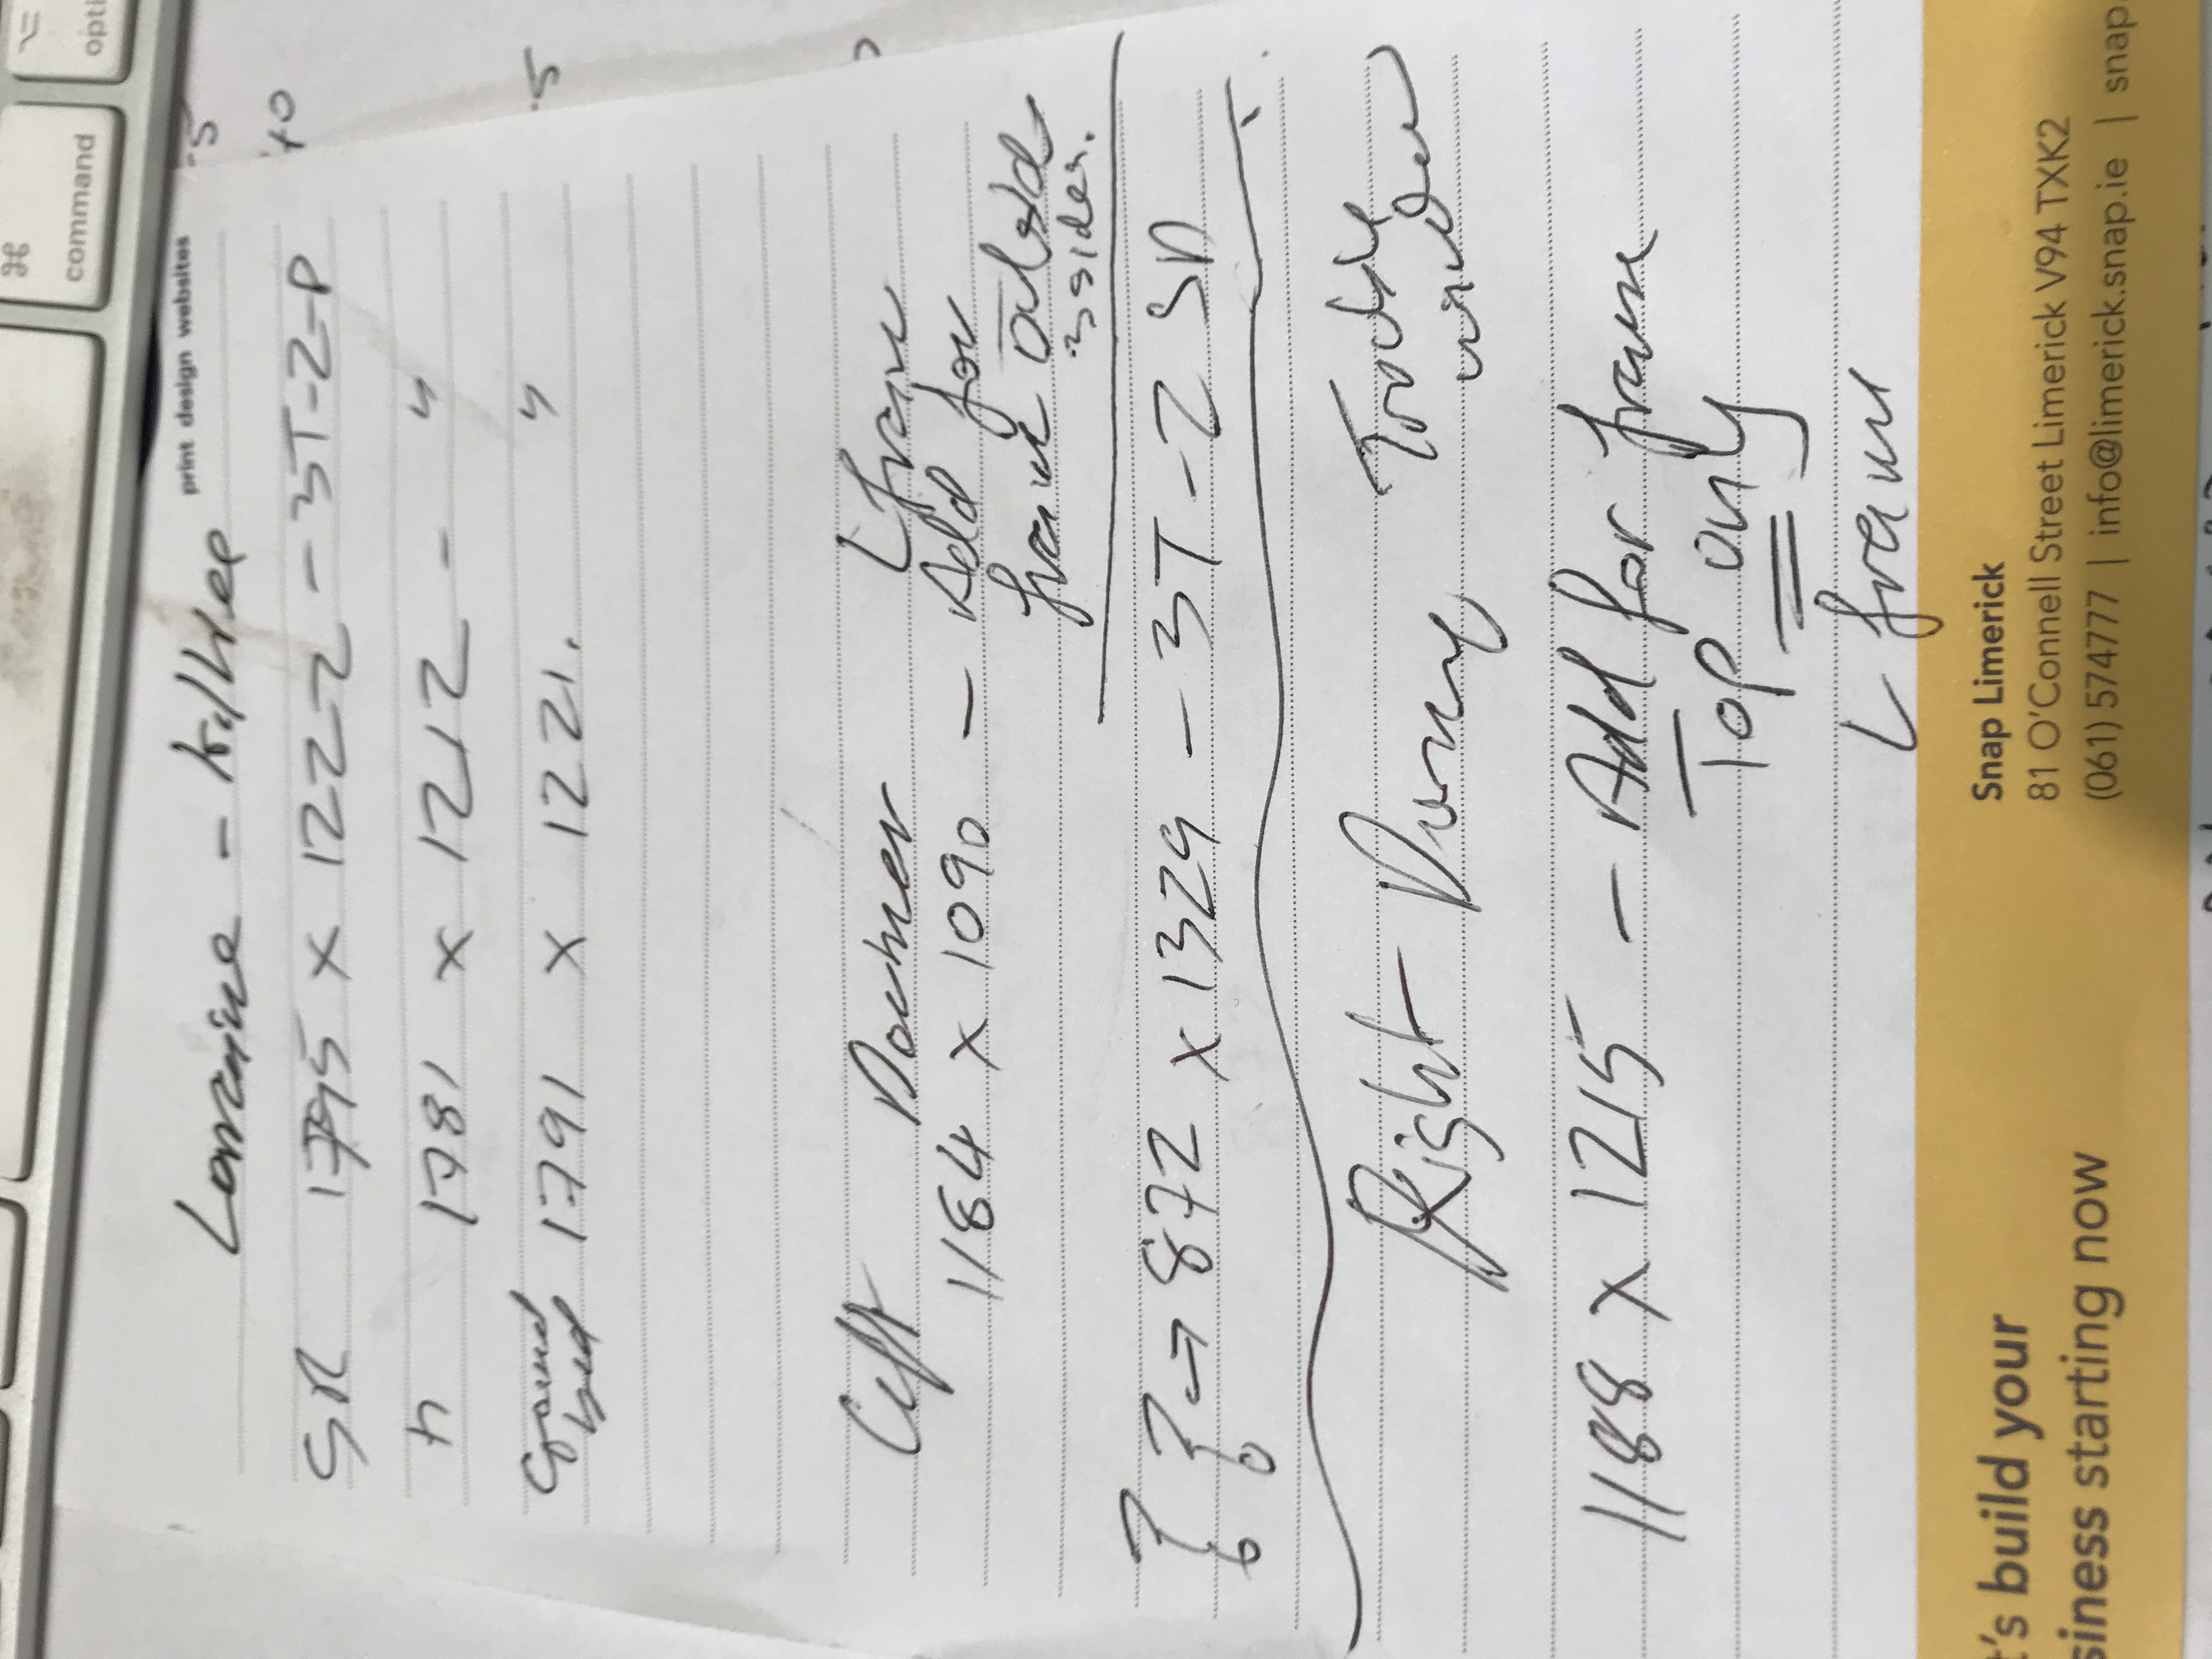 ⌥ =
opti
⌘
command
print design websites
Lorraine - Killilee
-5
SR 1795 × 1222 - 3T-2-P
10
" 1781 × 1212 - "
Ground
bed 1791 × 1221. "
.5
Left Dormer L frame
1184 × 1090 - Add for
frame outside
3 sides.
? ? => 872 × 1329 - 3T - 2 SD
Right Dormer
1188 × 1215 - Add for frame
Top only
L frame
t's build your
siness starting now
Snap Limerick
81 O'Connell Street Limerick V94 TXK2
(061) 574777 | info@limerick.snap.ie | snap.